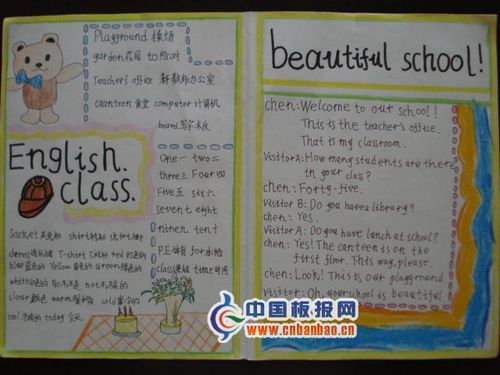 Playground 操场
garden花园 to 给,对
Teacher's office 教师办公室
canteen 食堂 computer 计算机
board 写字木板
English.
class.
One 一 two 二
three 三 Four 四
Five 五 six 六
seven 七 eight
nine 九 ten 十
P.E. 体育 for
class time 时间
Jacket shirt skirt
dress T-shirt red 红色的
blue 蓝色的 Yellow 黄色的 green 绿色的
white 白色的 No 不是 not
colour 颜色 warm cold
cool today 今天
beautiful school!
chen: Welcome to out school!
This is the teacher's office.
That is my classroom.
Visitor A: How many students are there
in your class?
chen: Forty-five.
Visitor B: Do you have a library?
chen: Yes.
Visitor A: Do you have lunch at school?
chen: Yes! The canteen is on the
first floor. This way, please.
chen: Look! This is our playground
visitor: Oh, your school is beautiful
中国板报网
www.cnbanbao.cn